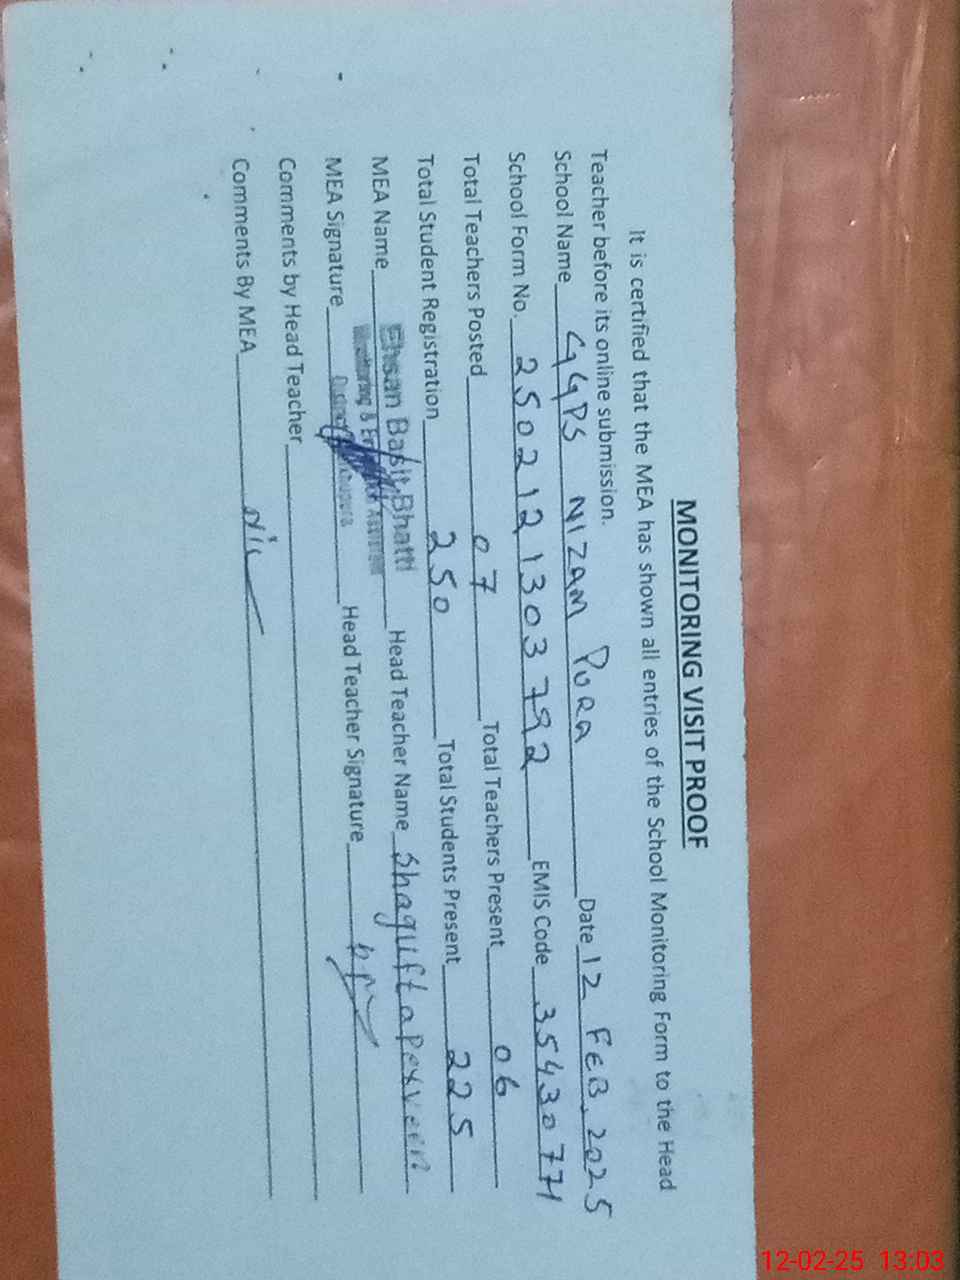 MONITORING VISIT PROOF
It is certified that the MEA has shown all entries of the School Monitoring Form to the Head
Teacher before its online submission.
School Name GGPS NIZAM PURA Date 12 FEB, 2025
School Form No. 2502121303792 EMIS Code 35430771
Total Teachers Posted 07 Total Teachers Present 06
Total Student Registration 250 Total Students Present 225
MEA Name Ehsan Basit Bhatti Head Teacher Name Shagufta Perveen
Monitoring & Assistant
MEA Signature District Head Teacher Signature
Comments by Head Teacher
Comments By MEA Nil
12-02-25 13:03